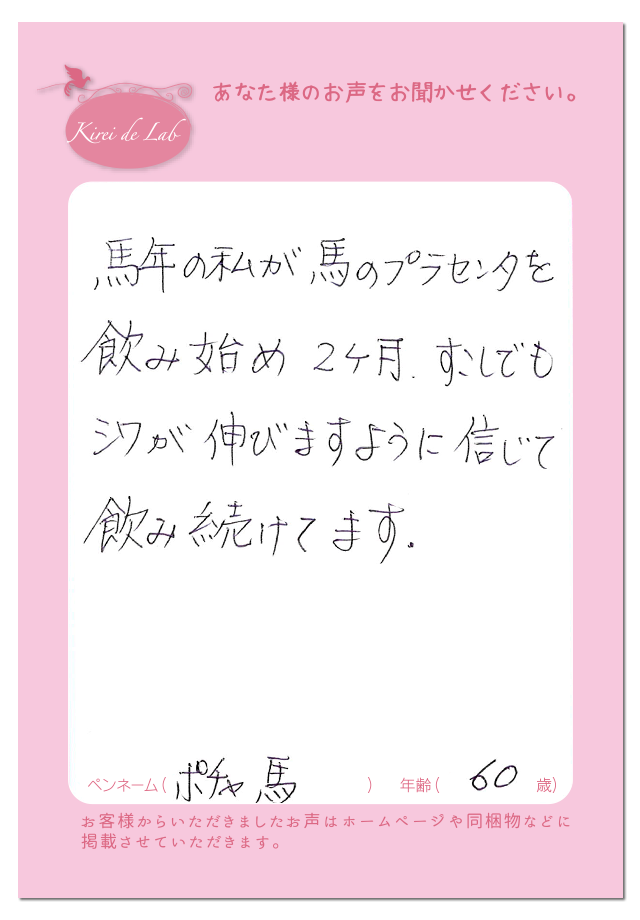 あなた様のお声をお聞かせください。
Kirei de Lab
馬年の私が馬のプラセンタを
飲み始め2ケ月.すこしでも
シワが伸びますように信じて
飲み続けてます.
ペンネーム( ポチャ馬 ) 年齢( 60 歳)
お客様からいただきましたお声はホームページや同梱物などに
掲載させていただきます。